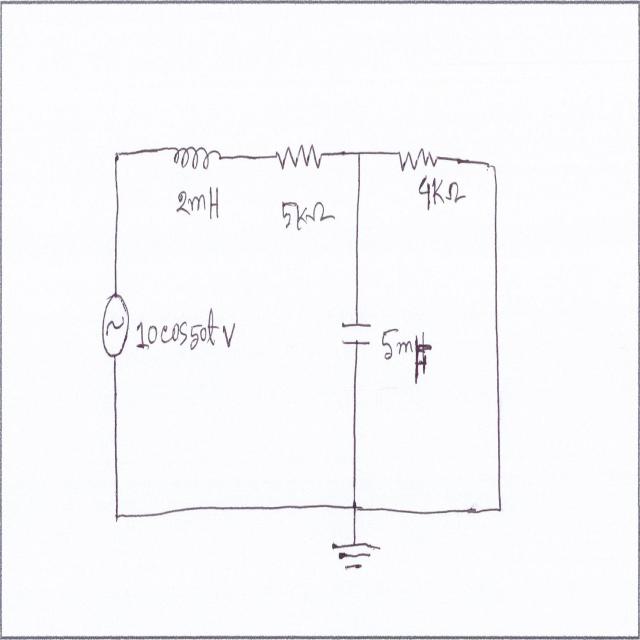 2mH
5KΩ
4KΩ
10cos50t V
5mF